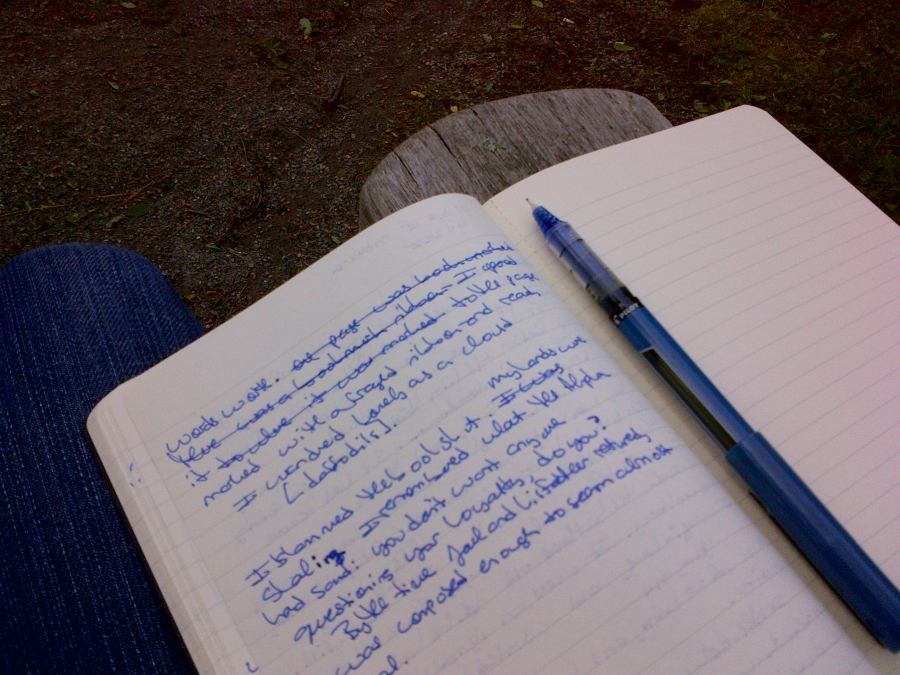 Wordsworth. One page was bookmarked
There was a book with ribbon. I opened
it to where it was marked to the page
marked with a frayed ribbon and read,
I wandered lonely as a cloud
[daffodils].
I slammed the book shut. It was my hands were
shaking. I remembered what the Alpha
had said: you don't want anyone
questioning your loyalties, do you?
By the time Joel and his father returned,
was composed enough to seem calm
PILOT